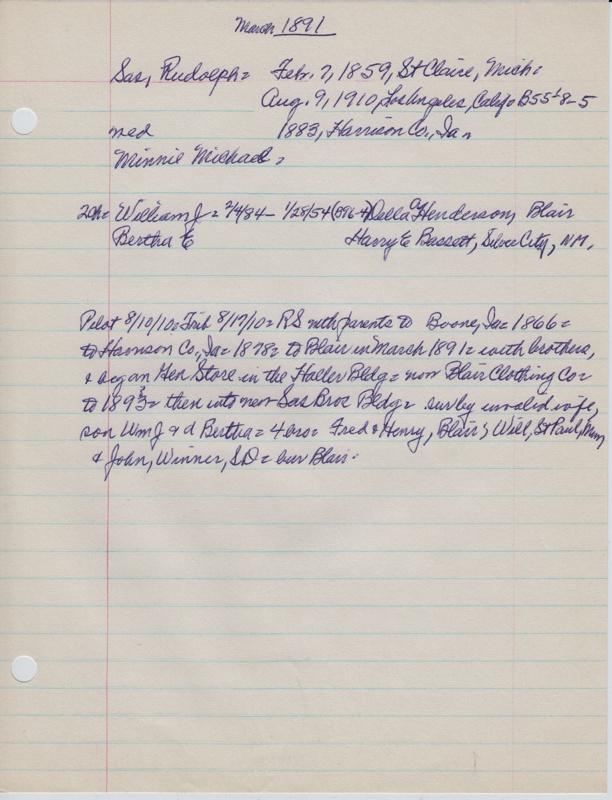 March 1891
Sas, Rudolph = Feb. 7, 1859, St Claire, Mich =
Aug. 9, 1910, Los Angeles, Calif = B55-L8-5
med 1883, Harrison Co., Ia =
Minnie Michael =
2ch = William J = 2/4/84 - 1/28/54 (896-4) Della C Henderson, Blair
Bertha E Harry E Bassett, Silver City, NM.
Pilot 8/10/10 = Trib 8/17/10 = RS with parents to Boone, Ia = 1866 =
to Harrison Co., Ia = 1878 = to Blair in March 1891 = with brothers,
& began Gen Store in the Haller Bldg = now Blair Clothing Co =
to 1893 = then into new Sas Bros Bldg = sur by invalid wife,
son Wm J & d Bertha = 4 bro = Fred & Henry, Blair; Will, St Paul, Minn,
& John, Winner, SD = bur Blair.